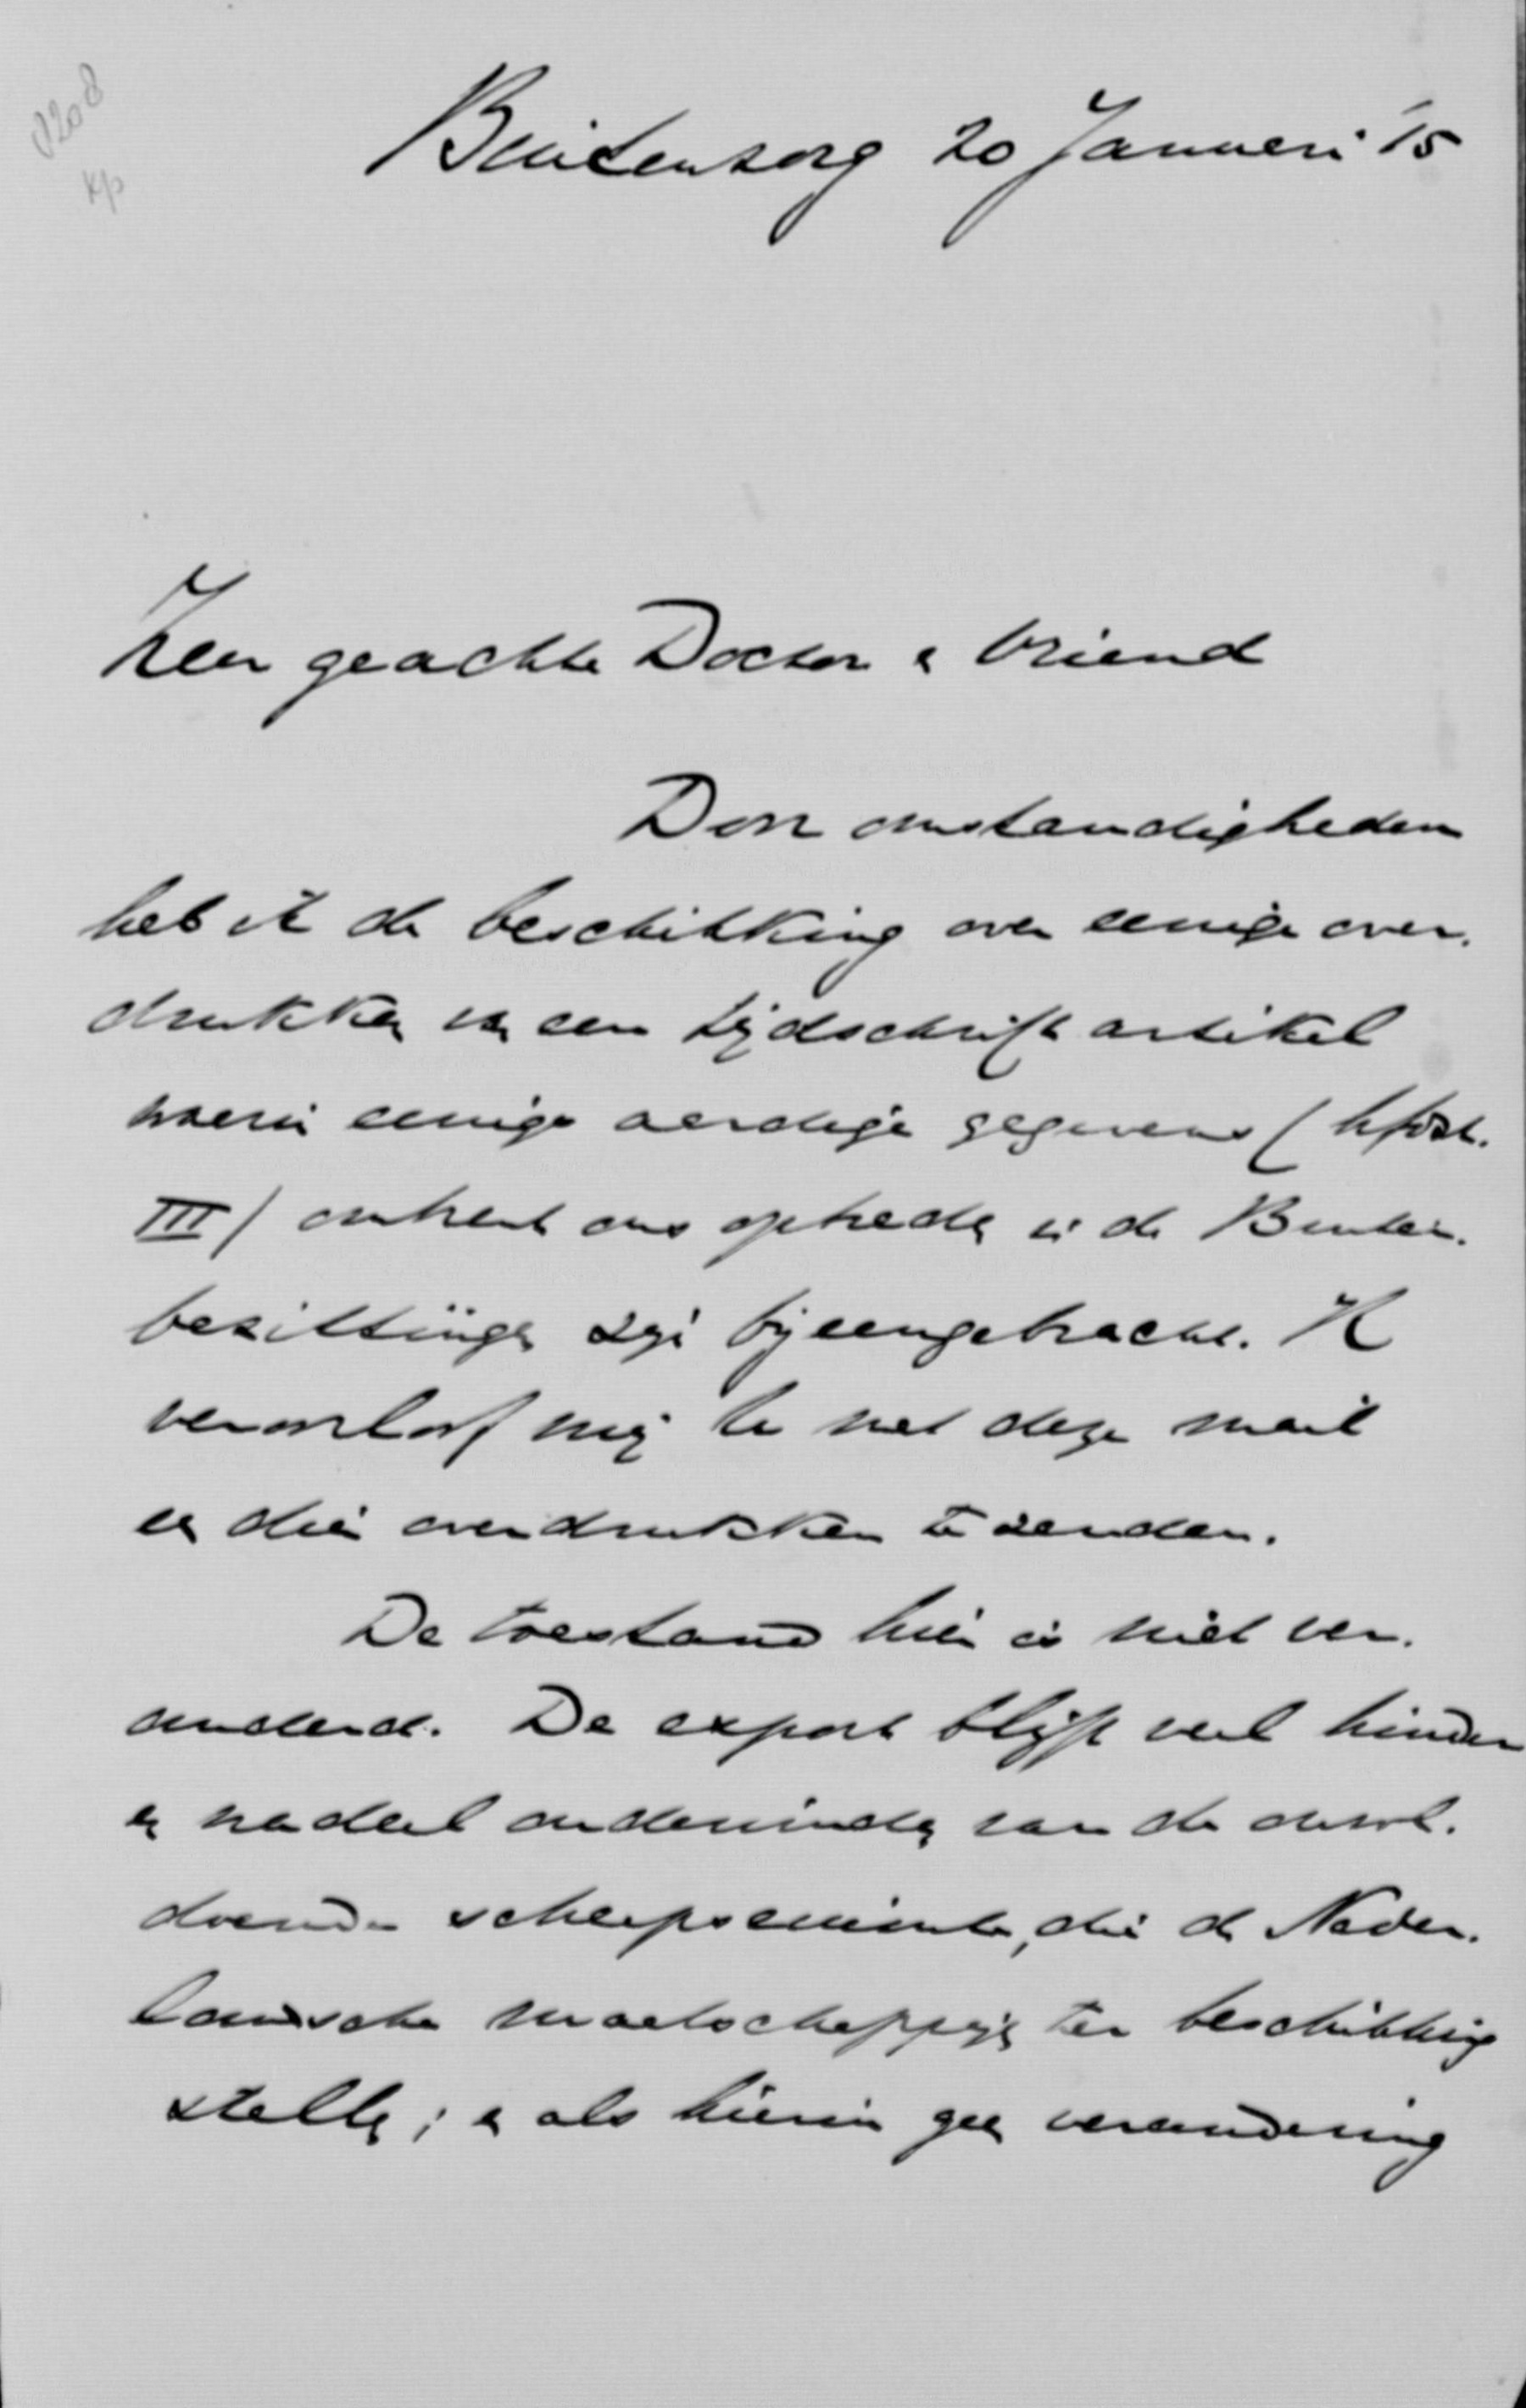 Buitenzorg 20 Januari '15
Zeer geachte Doctor & Vriend
Door omstandigheden
heb ik de beschikking over eenige over-
drukken van een tijdschriftartikel
waarin eenige aardige gegevens (hfdst.
III) omtrent ons optreden in de Buiten-
bezittingen zijn bijeengebracht. Ik
veroorloof mij U met deze mail
een dier overdrukken te zenden.
De toestand hier is niet ver-
anderd. De export blijft veel hinder
en nadeel ondervinden van de onvol-
doende scheepsruimte, die de Neder-
landsche maatschappijen ter beschikking
stellen; en als hierin geen verandering